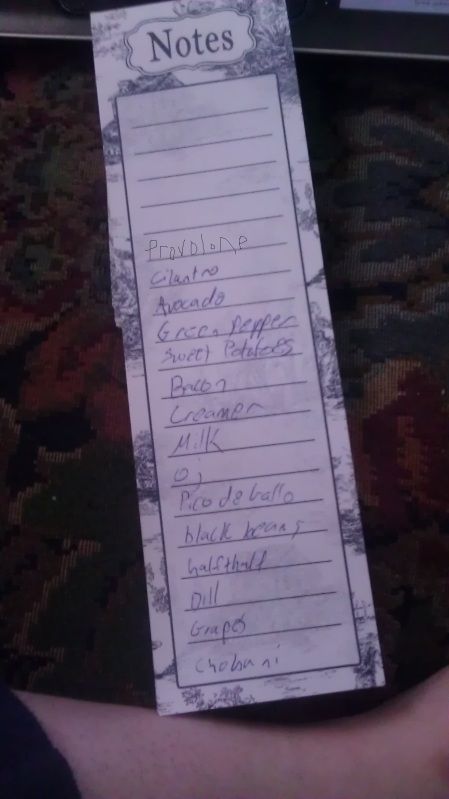 Notes
Provolone
Cilantro
Avocado
Green Pepper
Sweet Potatoes
Bacon
Creamer
Milk
Oj
Pico de Gallo
black beans
half+half
Dill
Grapes
Chobani